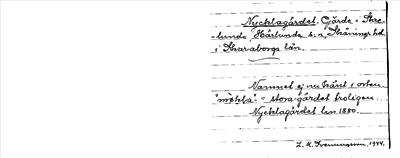 Nycklagärdet. Gärde i Stre-
lunda Härlunda s:n, Skånings hd
i Skaraborgs län.
Namnet ej nu känt i orten.
= stora gärdet troligen.
Nycklagärdet len 1880.
L. M. Svenungsson, 1944.